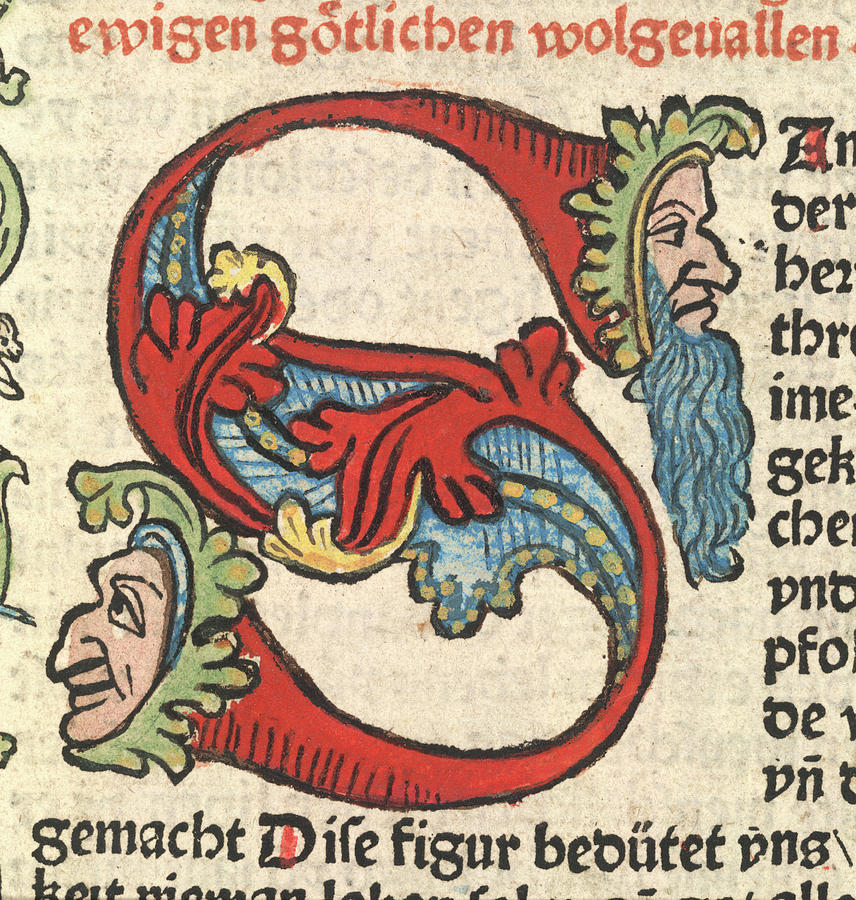 ewigen gőtlichen wolgeuallen
S
An
der
her
thr
ime
gek
che
vnd
pfol
de v
vn̄ d
gemacht Diſe figur bedütet vns